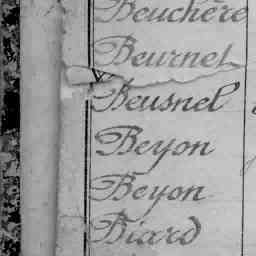 Beuchère
Beurnel
Beusnel
Beyon
Beyon
Biard